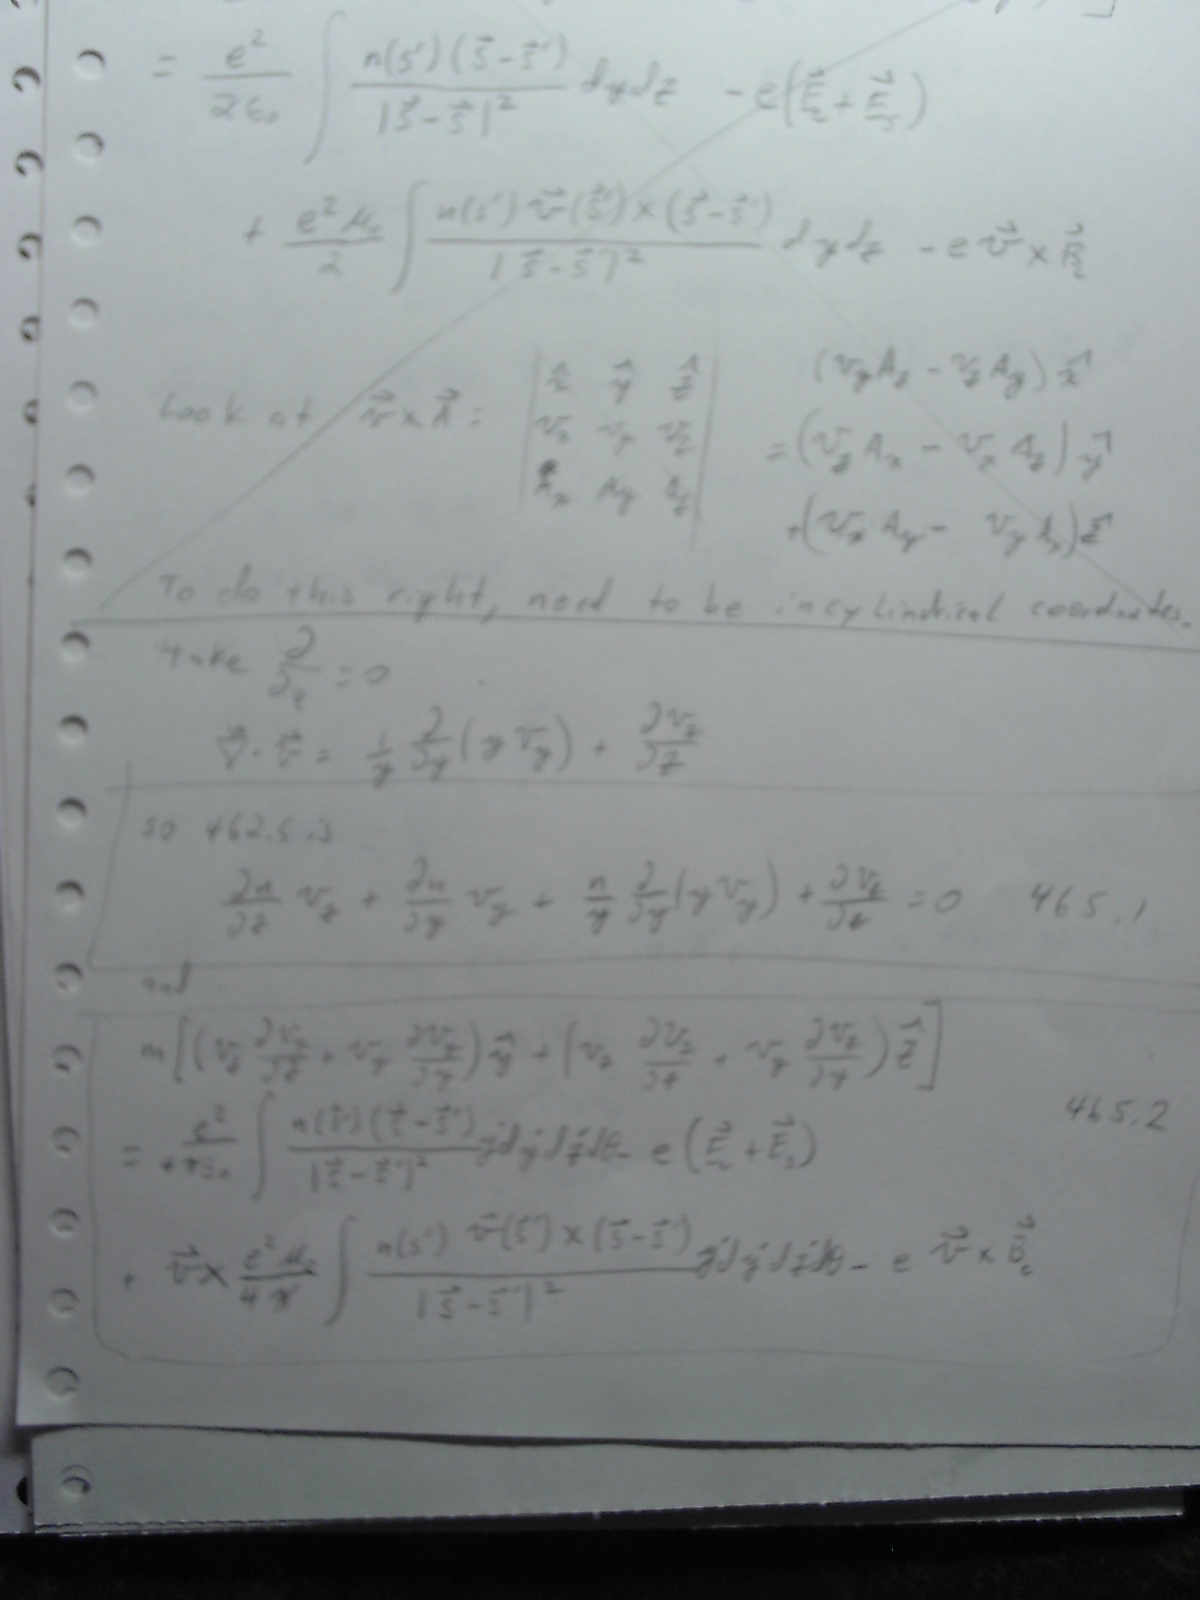 = e²/2ε₀ ∫ n(s')(s⃗-s⃗')/|s⃗-s⃗'|² dydz - e(E⃗c + E⃗s)
+ e²μ₀/2 ∫ n(s') v⃗(s⃗')×(s⃗-s⃗')/|s⃗-s⃗'|² dydz - e v⃗ × B⃗c
Look at v⃗×A⃗: | x̂ ŷ ẑ | (vyAz - vzAy) x̂
| vx vy vz | = (vzAx - vxAz) ŷ
| Ax Ay Az | + (vxAy - vyAx) ẑ
To do this right, need to be in cylindrical coordinates.
take ∂/∂φ = 0
∇⃗·v⃗ = 1/y ∂/∂y (y vy) + ∂vz/∂z
so 462.5 is
∂n/∂z vz + ∂n/∂y vy + n/y ∂/∂y (y vy) + ∂vz/∂z = 0 465.1
and
m[(vz ∂vy/∂z + vy ∂vy/∂y) ŷ + (vz ∂vz/∂z + vy ∂vz/∂y) ẑ]
465.2
= e²/4πε₀ ∫ n(s⃗')(s⃗-s⃗')/|s⃗-s⃗'|² y'dy'dz'dθ - e(E⃗c + E⃗s)
+ v⃗ × e²μ₀/4π ∫ n(s') v⃗(s⃗')×(s⃗-s⃗')/|s⃗-s⃗'|² y'dy'dz'dθ - e v⃗ × B⃗c